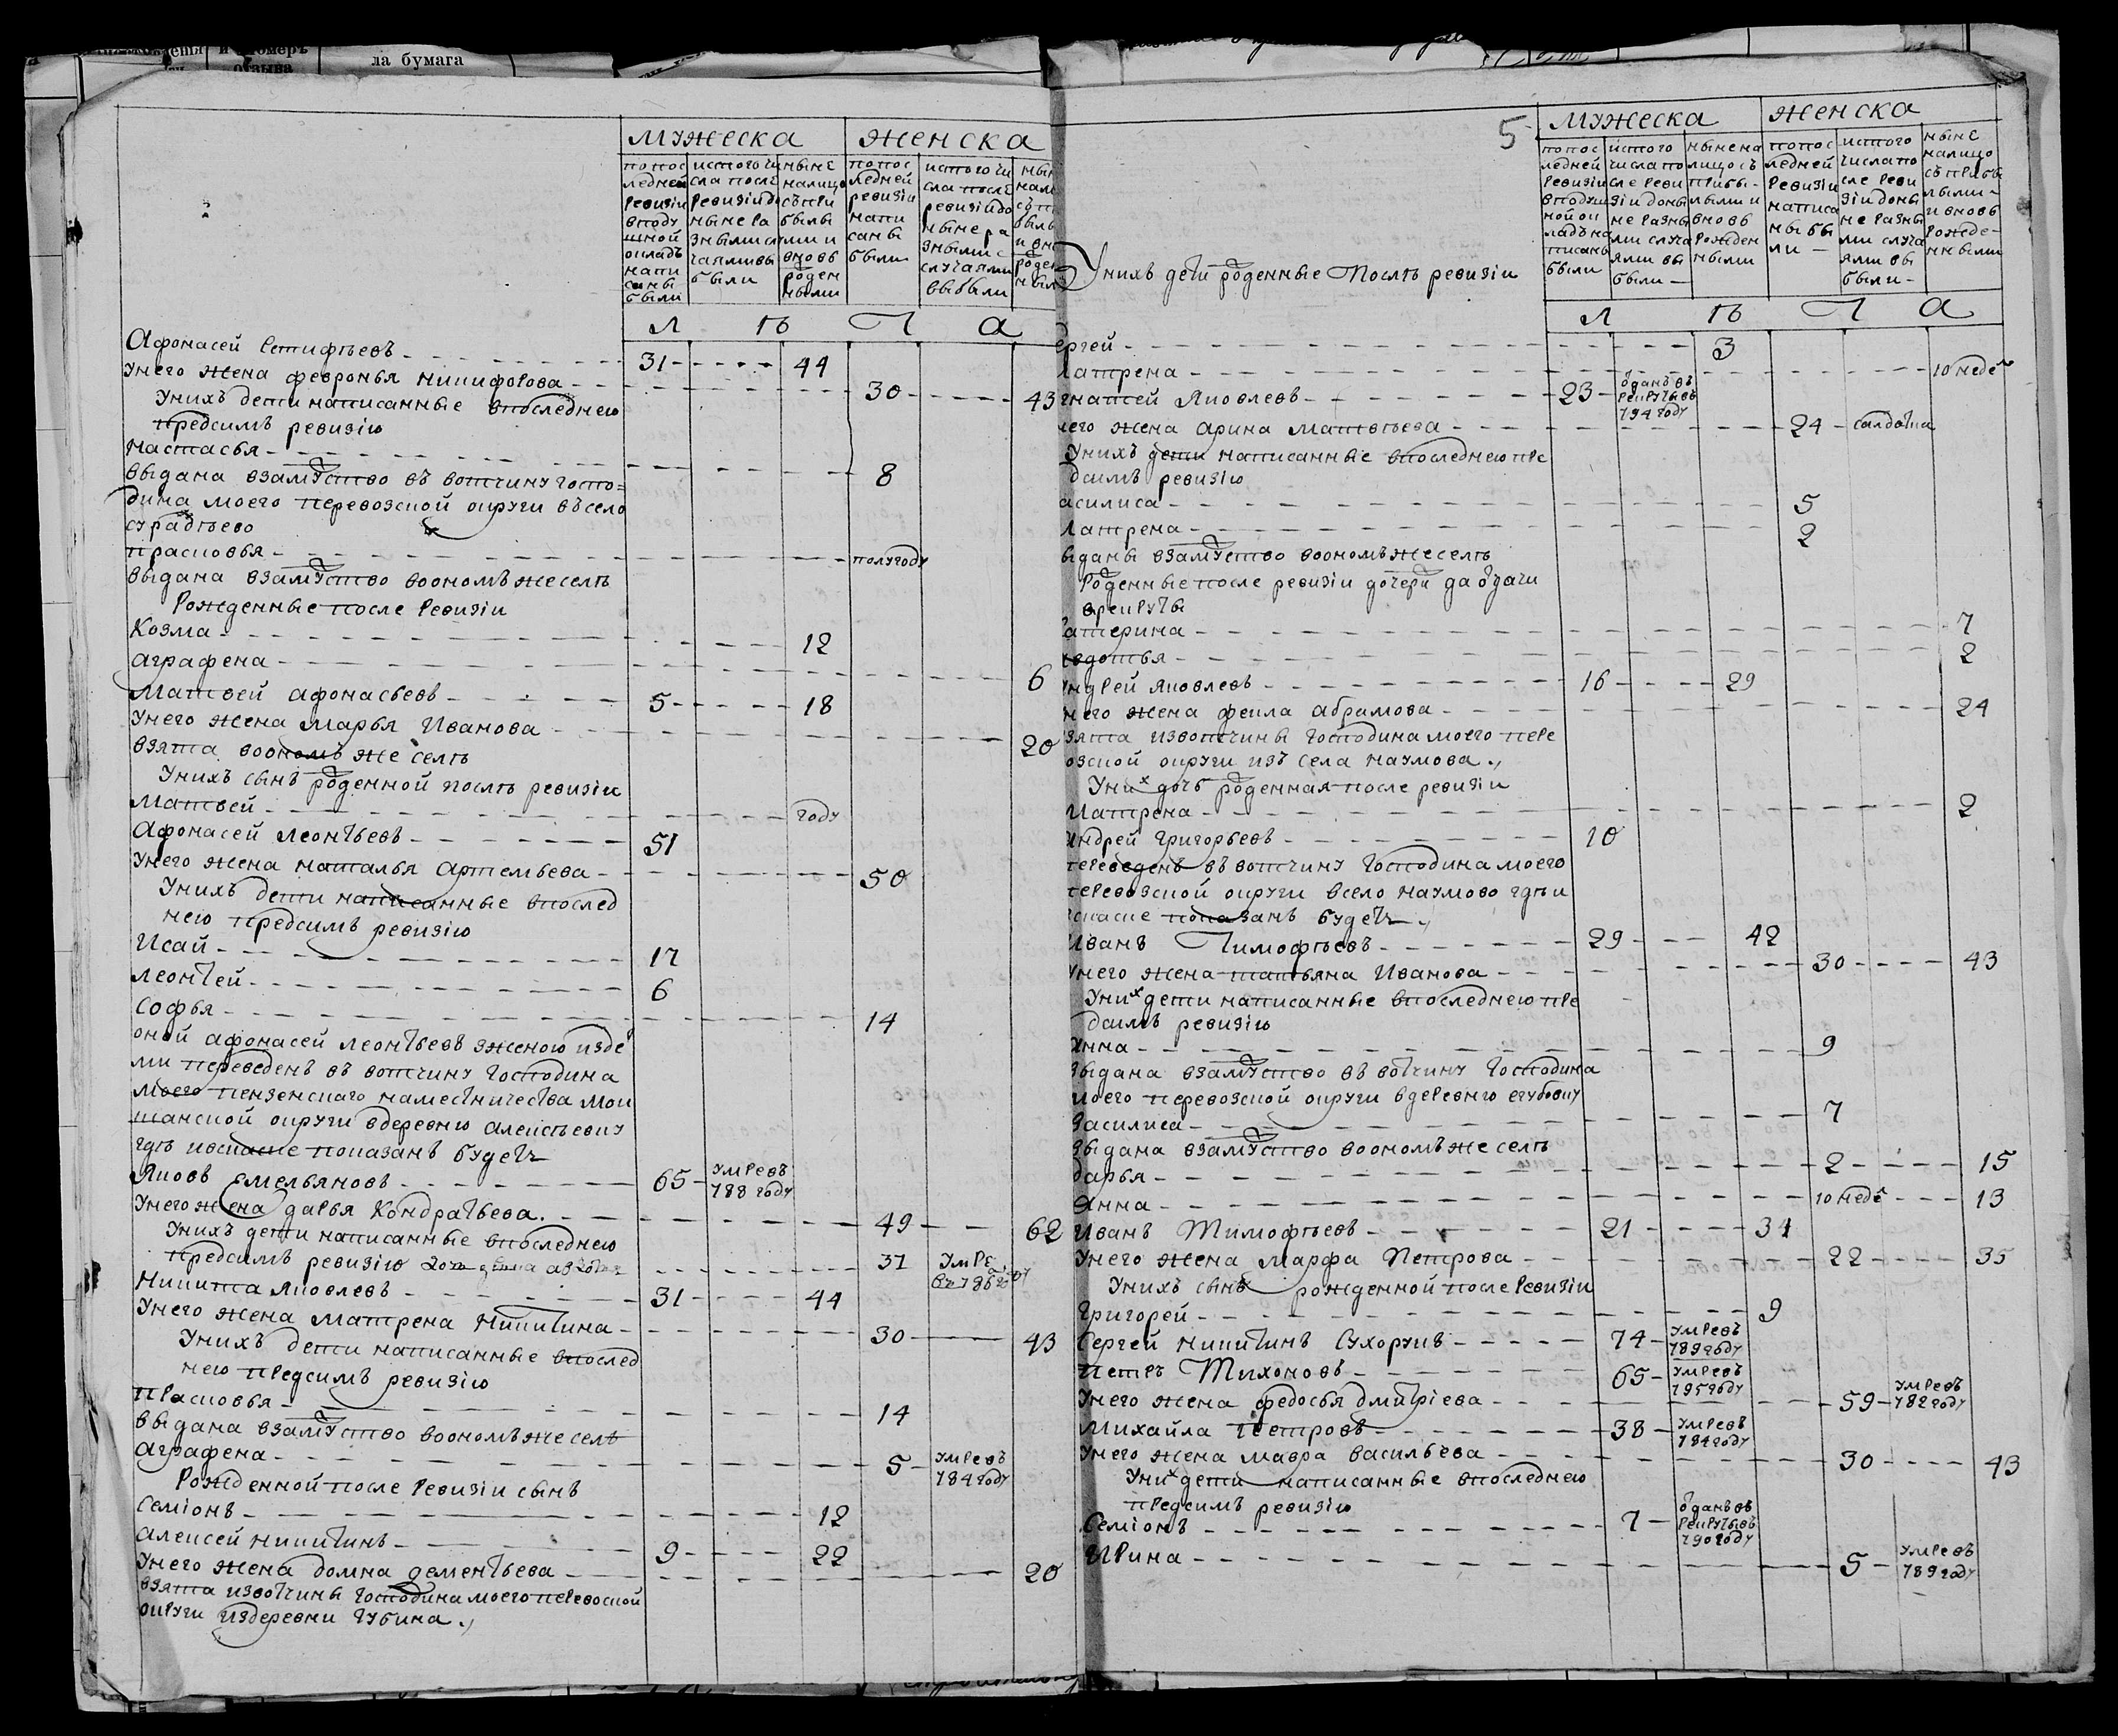 и номеръ
отзыва
ла бумага
мужеска женска
попос
ледней
ревизіи
вподу
шной
окладъ
напи
саны
были
истого чи
сла после
ревизіи до
ныне ра
зными слу
чаями вы
были
ныне
налицо
съ при
былы
ми и
вновь
роден
ными
попос
ледней
ревизіи
напи
саны
были
истого чи
сла после
ревизіи до
ныне ра
зными с
лучаями
выбыли
Л Ѣ Т А
Афонасей Естифѣевъ 31 44
Унего жена февронья никифорова 30 43
Унихъ дети написанные впоследнею
предсимъ ревизію
Настасья 8
выдана взамуство въ вотчину госпо=
дина моего перевозской округи въ село
сурадѣево
прасковья полугоду
выдана взамуство воономъ же селѣ
Рожденные после ревизіи
Козма 12
аграфена 6
Матвей афонасьевъ 5 18
Унего жена марья Иванова 20
взята воономъ же селѣ
Унихъ сынъ роденной послѣ ревизіи
Матвей году
Афонасей леонтьевъ 51
Унего жена наталья Артемьева 50
Унихъ дети написанные впослед
нею предсимъ ревизію
Исай 17
леонтей 6
софья 14
оной афонасей леонтьевъ зженою издѣ
ми переведенъ въ вотчину Господина
моего пензенскаго наместничества мок
шанской округи вдеревню алексѣевку
гдѣ ивскаске показанъ будетъ
Яковъ Емельяновъ 65 умревъ
788 году
Унего жена дарья Кондратьева 49 62
Унихъ дети написанные впоследнею
предсимъ ревизію 37 умре
въ 786 году
Никита Яковлевъ 31 44
Унего жена матрена Никитина 30 43
Унихъ дети написанные впослед
нею предсимъ ревизію
прасковья 14
выдана взамуство воономъ же селѣ
аграфена 5 умревъ
784 году
Рожденной после ревизіи сынъ
семіонъ 12
алексей никитинъ 9 22
Унего жена домна дементьева 20
взята извотчины господина моего перевоской
округи издеревни Губина
5
мужеска женска
попос
ледней
ревизіи
вподуш
ной ок
ладъ на
писаны
были
истого
числа по
сле реви
зіи доны
не разны
ми случа
ями вы
были
ныне на
лицо съ
прибы
лыми и
вновь
рожден
ными
попос
ледней
ревизіи
написа
ны бы
ли
истого
числа по
сле реви
зіи доны
не разны
ми случа
ями вы
были
ныне
налицо
съ прибы
лыми
и вновь
рожде
нными
Унихъ дети роденные Послѣ ревизіи
Л Ѣ Т А
ергей 3
Матрена 10 неде
гнатей Яковлевъ 23 отданъ въ
рекруты въ
794 году
него жена арина матвѣева 24 салдатка
Унихъ дети написанные впоследнею пре
дсимъ ревизію
асилиса 5
Матрена 2
ыданы взамуство воономъ же селѣ
Роденные после ревизіи дочери до отдачи
врекруты
атерина 7
вдотья 2
Андрей Яковлевъ 16 29
него жена фекла абрамова 24
зята извотчины Господина моего пере
возской округи изъ села наумова
Уних дочь роденная после ревизіи
Матрена 2
Андрей григорьевъ 10
переведенъ въ вотчину Господина моего
перевозской округи всело наумово гдѣ и
скаске показанъ будетъ
Иванъ Тимофѣевъ 29 42
Унего жена татьяна Иванова 30 43
Уних дети написанные впоследнею пре
дсимъ ревизію
Анна 9
выдана взамуство въ вотчину Господина
моего перевозской округи вдеревню
Василиса 7
выдана взамуство воономъ же селѣ
дарья 2 15
Анна 10 неде 13
Иванъ Тимофѣевъ 21 34
Унего жена марфа Петрова 22 35
Унихъ сынъ рожденной после ревизіи
Григорей 9
Сергей никитинъ Сухорукъ 74 умревъ
789 году
Петръ Тихоновъ 65 умревъ
795 году
Унего жена федосья дмитріева 59 умревъ
782 году
Михайла Петровъ 38 умревъ
784 году
Унего жена мавра васильева 30 43
Уних дети написанные впоследнею
предсимъ ревизію
Семіонъ 7 отданъ въ
рекруты въ
790 году
Ирина 5 умревъ
789 году